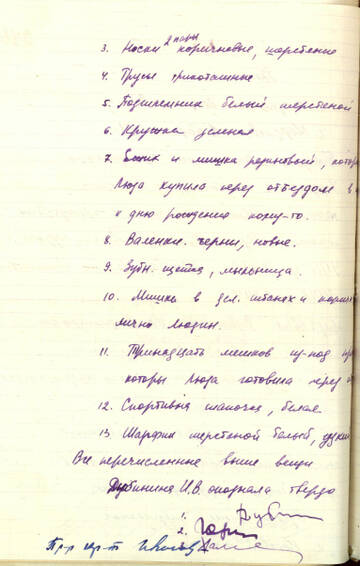 2 пары
3. Носки коричновые, шерстение
4. Трусы трикоташние
5. Подшлемник белый шерстеной
6. Кружка зеленая
7. и мишка резиновый,
Люда купила перед отъездом в
к дню рождения кому-то.
8. Валенки черны, новые.
9. Зубн. щетка, мыльница.
10. Мишка в зел. штанах и
лично Людин.
11. Тринадцать мешков из-под
которы Люда готовила через
12. Спортивная шапочка, белая
13. Шарфик шерстеной белый,
Все перечисленные выше вещи
Дубинина И.В. опознала твердо
1.
2.